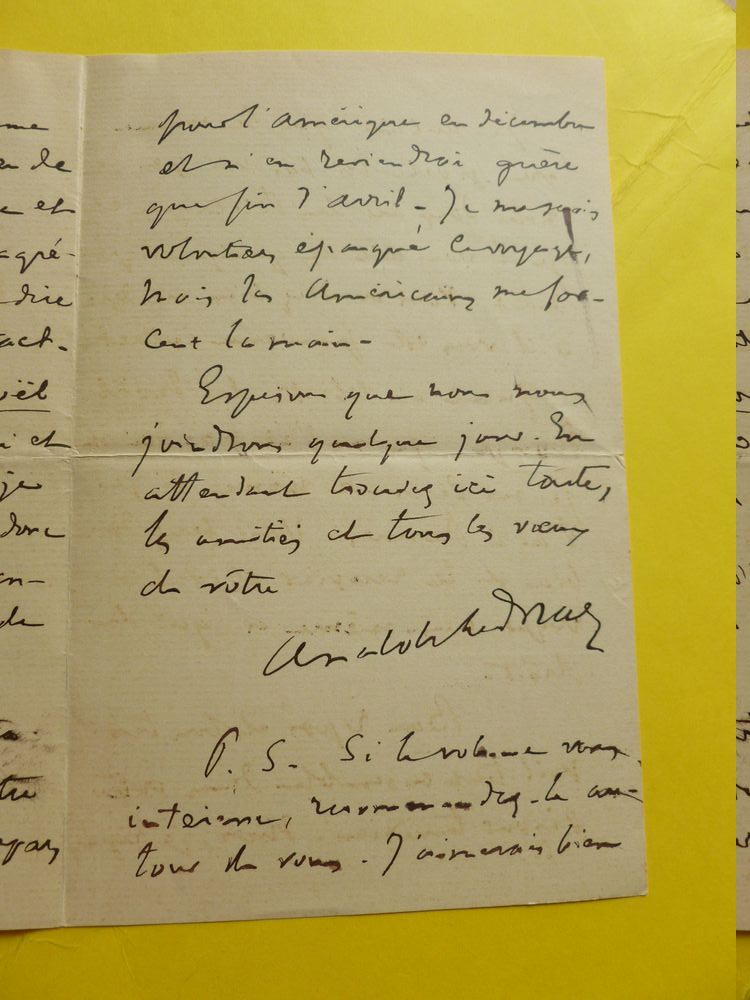 me
de
et
agré-
dire
act-
oël
i et
je
donc
an-
de
tre
pour l'Amérique en décembre
et n'en reviendrai guère
que fin d'avril - Je me serais
volontiers épargné le voyage,
mais les Américains me for-
cent la main -
Espérons que nous nous
joindrons quelque jour. En
attendant trouvez ici toutes
les amitiés et tous les vœux
du vôtre
Anatole Le Braz
P. S. Si le volume vous
intéresse, recommandez-le au-
tour de vous. J'aimerais bien